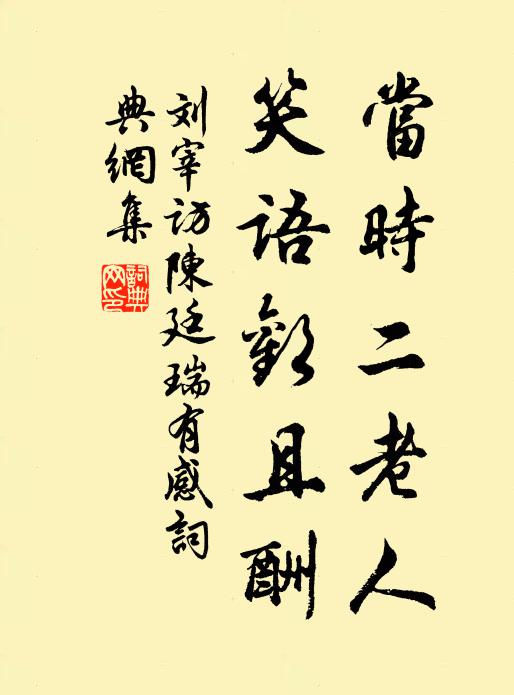 當時二老人
笑語歡且酬
刘宰访陳廷瑞有感詞
典網集
詞典網印